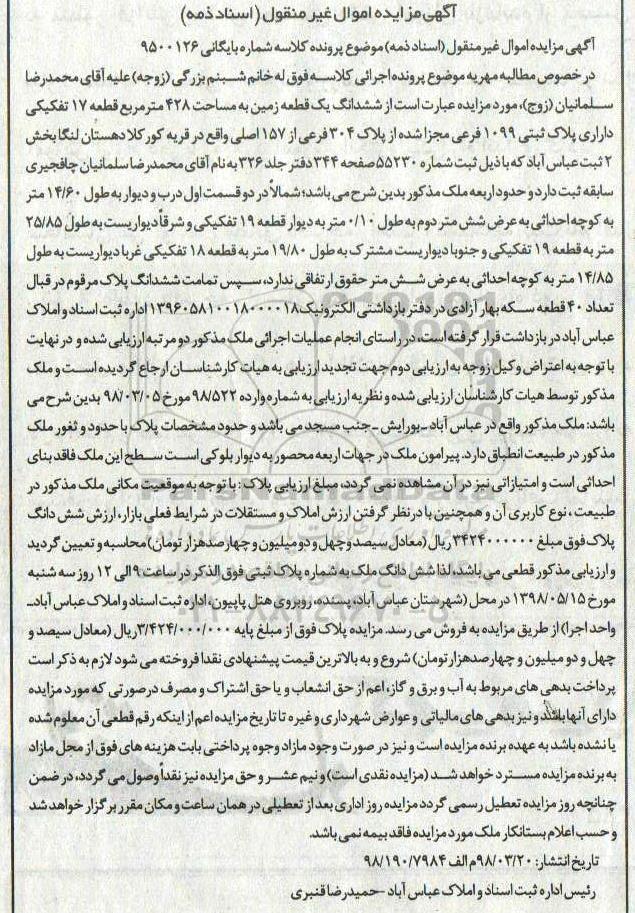 آگهی مزایده اموال غیر منقول (اسناد ذمه)
آگهی مزایده اموال غیر منقول (اسناد ذمه) موضوع پرونده کلاسه شماره بایگانی ۹۵۰۰۱۲۶
در خصوص مطالبه مهریه موضوع پرونده اجرائی کلاسه فوق له خانم شبنم بزرگی (زوجه) علیه آقای محمدرضا
سلمانیان (زوج)، مورد مزایده عبارت است از ششدانگ یک قطعه زمین به مساحت ۴۲۸ متر مربع قطعه ۱۷ تفکیکی
دارای پلاک ثبتی ۱۰۹۹ فرعی مجزا شده از پلاک ۳۰۴ فرعی از ۱۵۷ اصلی واقع در قریه کورکلا دهستان لنگا بخش
۲ ثبت عباس آباد که با ذیل ثبت شماره ۵۵۲۳۰ صفحه ۳۴۴ دفتر جلد ۳۲۶ به نام آقای محمدرضا سلمانیان چافجیری
سابقه ثبت دارد و حدود اربعه ملک مذکور بدین شرح می باشد؛ شمالاً در دو قسمت اول درب و دیوار به طول ۱۴/۶۰ متر
به کوچه احداثی به عرض شش متر دوم به طول ۰/۱۰ متر به دیوار قطعه ۱۹ تفکیکی و شرقاً دیواریست به طول ۲۵/۸۵
متر به قطعه ۱۹ تفکیکی و جنوبا دیواریست مشترک به طول ۱۹/۸۰ متر به قطعه ۱۸ تفکیکی غربا دیواریست به طول
۱۴/۸۵ متر به کوچه احداثی به عرض شش متر حقوق ارتفاقی ندارد، سپس تمامت ششدانگ پلاک مرقوم در قبال
تعداد ۴۰ قطعه سکه بهار آزادی در دفتر بازداشتی الکترونیک ۱۳۹۶۰۵۸۱۰۰۱۸۰۰۰۰۱۸ اداره ثبت اسناد و املاک
عباس آباد در بازداشت قرار گرفته است، در راستای انجام عملیات اجرائی ملک مذکور دو مرتبه ارزیابی شده و در نهایت
با توجه به اعتراض وکیل زوجه به ارزیابی دوم جهت تجدید ارزیابی به هیات کارشناسان ارجاع گردیده است و ملک
مذکور توسط هیات کارشناسان ارزیابی شده و نظریه ارزیابی به شماره وارده ۹۸/۵۲۲ مورخ ۹۸/۰۳/۰۵ بدین شرح می
باشد: ملک مذکور واقع در عباس آباد - بورایش - جنب مسجد می باشد و حدود مشخصات پلاک با حدود و ثغور ملک
مذکور در طبیعت انطباق دارد. پیرامون ملک در جهات اربعه محصور به دیوار بلوکی است سطح این ملک فاقد بنای
احداثی است و امتیازاتی نیز در آن مشاهده نمی گردد، مبلغ ارزیابی پلاک: با توجه به موقعیت مکانی ملک مذکور در
طبیعت، نوع کاربری آن و همچنین با درنظر گرفتن ارزش املاک و مستقلات در شرایط فعلی بازار، ارزش شش دانگ
پلاک فوق مبلغ ۳۴۲۴۰۰۰۰۰۰ ریال (معادل سیصد و چهل و دو میلیون و چهارصدهزار تومان) محاسبه و تعیین گردید
و ارزیابی مذکور قطعی می باشد. لذا شش دانگ ملک به شماره پلاک ثبتی فوق الذکر در ساعت ۹ الی ۱۲ روز سه شنبه
مورخ ۱۳۹۸/۰۵/۱۵ در محل (شهرستان عباس آباد، پسنده، روبروی هتل پاپیون، اداره ثبت اسناد و املاک عباس آباد-
واحد اجرا) از طریق مزایده به فروش می رسد. مزایده پلاک فوق از مبلغ پایه ۳/۴۲۴/۰۰۰/۰۰۰ ریال (معادل سیصد و
چهل و دو میلیون و چهارصدهزار تومان) شروع و به بالاترین قیمت پیشنهادی نقدا فروخته می شود لازم به ذکر است
پرداخت بدهی های مربوط به آب و برق و گاز، اعم از حق انشعاب و یا حق اشتراک و مصرف درصورتی که مورد مزایده
دارای آنها باشد و نیز بدهی های مالیاتی و عوارض شهرداری و غیره تا تاریخ مزایده اعم از اینکه رقم قطعی آن معلوم شده
یا نشده باشد به عهده برنده مزایده است و نیز در صورت وجود مازاد وجوه پرداختی بابت هزینه های فوق از محل مازاد
به برنده مزایده مسترد خواهد شد (مزایده نقدی است) و نیم عشر و حق مزایده نیز نقداً وصول می گردد، در ضمن
چنانچه روز مزایده تعطیل رسمی گردد مزایده روز اداری بعد از تعطیلی در همان ساعت و مکان مقرر برگزار خواهد شد
و حسب اعلام بستانکار ملک مورد مزایده فاقد بیمه نمی باشد.
تاریخ انتشار: ۹۸/۰۳/۲۰ م الف ۹۸/۱۹۰/۷۹۸۴
رئیس اداره ثبت اسناد و املاک عباس آباد - حمیدرضا قنبری
ParsNamadData